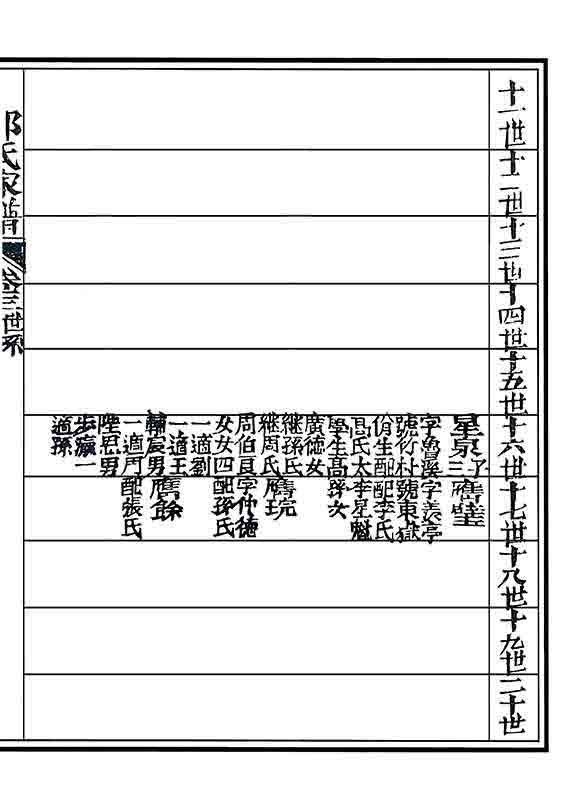 十一世
十二世
十三世
十四世
十五世
十六世
十七世
十八世
十九世
二十世
星泉子三
字魯溪
號竹村
佾生配
高氏太
學生高
廣德女
繼孫氏
繼周氏
周伯良
女女四
一適劉
一適王
輔宸男
一適門
陞思男
步瀛一
適孫
字羨亭
號東嶽
配李氏
李星魁
女
字仲德
配孫氏
配張氏
氏家譜
卷三世系